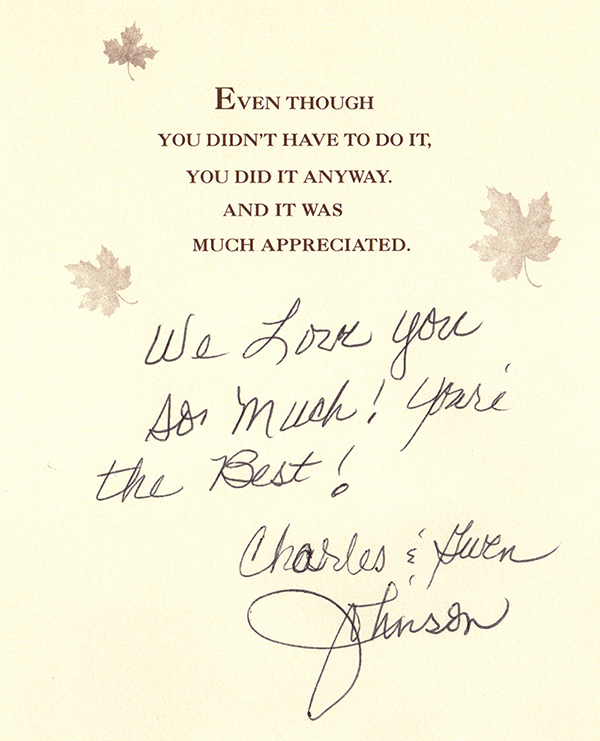 EVEN THOUGH
YOU DIDN'T HAVE TO DO IT,
YOU DID IT ANYWAY.
AND IT WAS
MUCH APPRECIATED.
We Love you
so Much! You're
the Best!
Charles & Gwen
Johnson